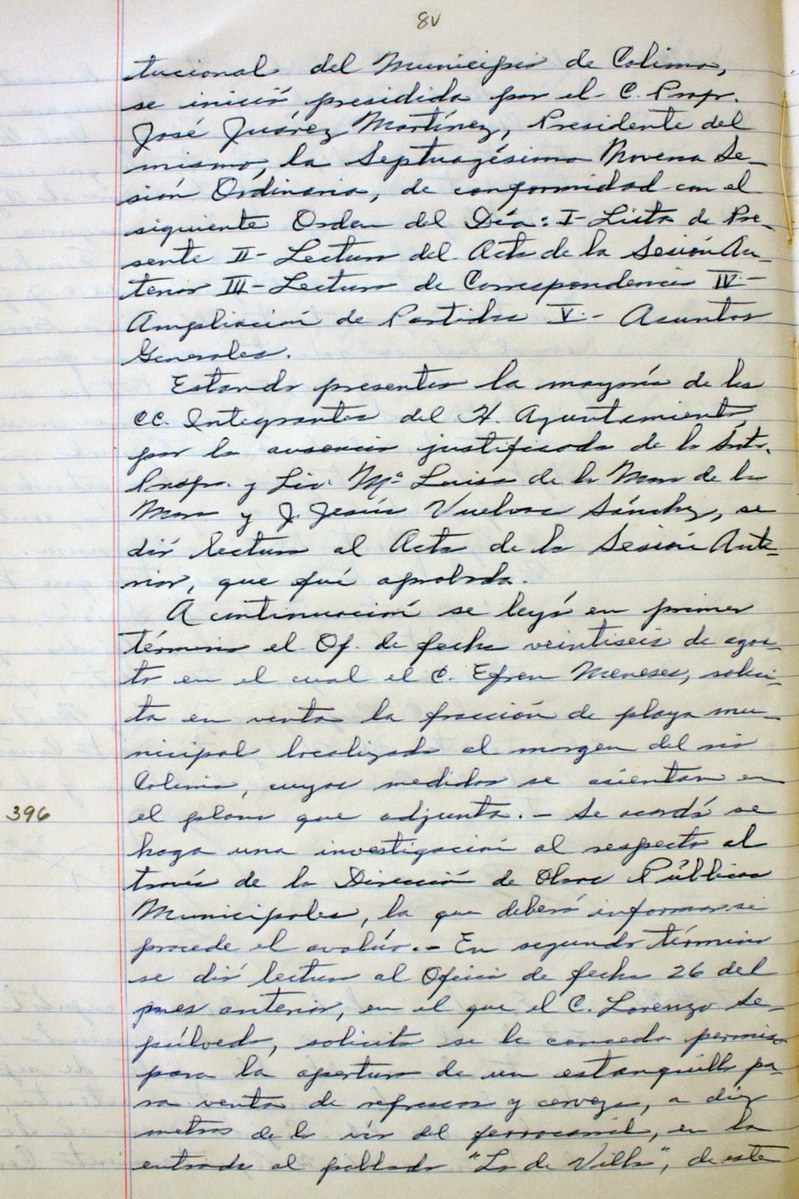 8v
tucional del Municipio de Colima,
se inició presidida por el C. Profr.
José Juárez Martínez, Presidente del
mismo, la Septuagésima Novena Se-
sión Ordinaria, de conformidad con el
siguiente Orden del Día: I- Lista de Pre-
sente II- Lectura del Acta de la Sesión An-
terior III- Lectura de Correspondencia IV.-
Ampliación de Partidas V.- Asuntos
Generales.
Estando presentes la mayoría de los
CC. Integrantes del H. Ayuntamiento,
por la ausencia justificada de la Srita.
Profr. y Lic. Mª Luisa de la Mora de la
Mora y J. Jesús Vuelvas Sánchez, se
dió lectura al Acta de la Sesión Ante-
rior, que fué aprobada.
A continuación se leyó en primer
término el Of. de fecha veintiseis de agos-
to en el cual el C. Efren Meneses, solici-
ta en venta la fracción de playa mu-
nicipal localizada al margen del rio
Colima, cuyas medidas se asientan en
396
el plano que adjunta.- Se acordó se
haga una investigación al respecto al
través de la Dirección de Obras Públicas
Municipales, la que deberá informar si
procede el avalúo.- En segundo término
se dió lectura al Oficio de fecha 26 del
mes anterior, en el que el C. Lorenzo Se-
púlveda, solicita se le conceda permiso
para la apertura de un estanquillo pa-
ra venta de refrescos y cerveza, a diez
metros de la vía del ferrocarril, en la
entrada al poblado "Lo de Villa", de este